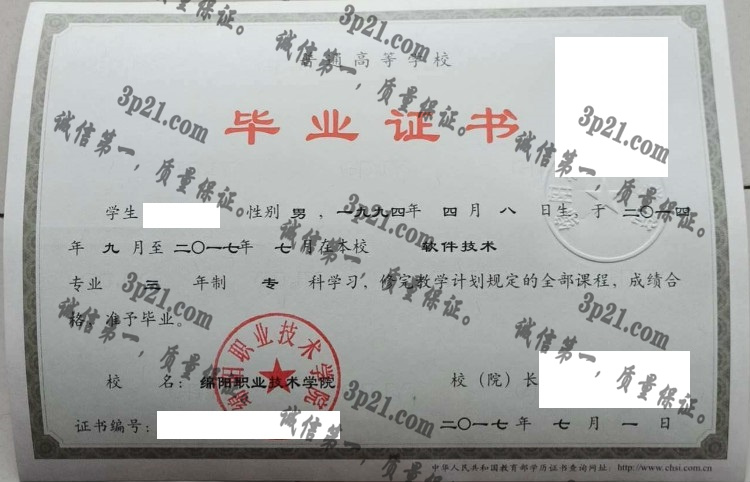 普通高等学校
毕业证书
学生 性别 男 ，一九九四年 四 月 八 日生，于 二〇一四
年 九 月至 二〇一七年 七 月在本校 软件技术
专业 三 年制 专 科学习，修完教学计划规定的全部课程，成绩合
格，准予毕业。
绵阳职业技术学院
校 名：绵阳职业技术学院 校（院）长
证书编号： 二〇一七年 七 月 一 日
中华人民共和国教育部学历证书查询网址：http://www.chsi.com.cn
3p21.com
诚信第一，质量保证。
3p21.com
诚信第一，质量保证。
3p21.com
诚信第一，质量保证。
3p21.com
诚信第一，质量保证。
3p21.com
诚信第一，质量保证。
3p21.com
诚信第一，质量保证。
3p21.com
诚信第一，质量保证。